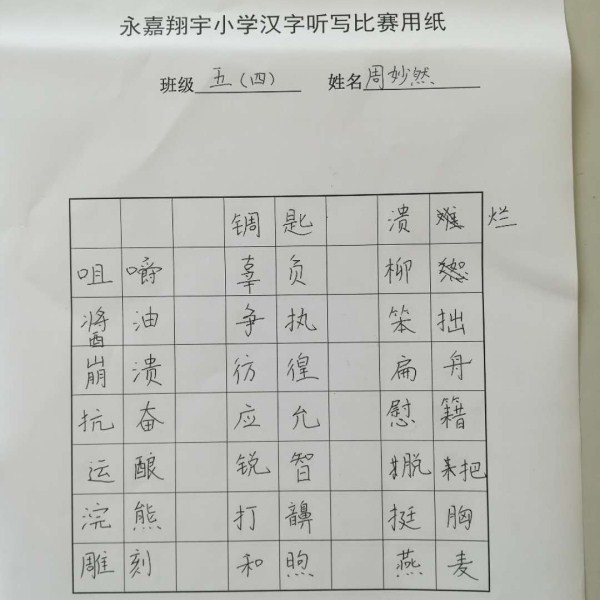 永嘉翔宇小学汉字听写比赛用纸
班级 五(四) 姓名 周妙然
匙 溃 烂
咀 嚼 辜 负 柳
醬 油 争 执 笨 拙
崩 溃 彷 徨 扁 舟
抗 奋 应 允 慰 籍
运 酿 锐 智 脱 把
浣 熊 打 挺 胸
雕 刻 和 煦 燕 麦